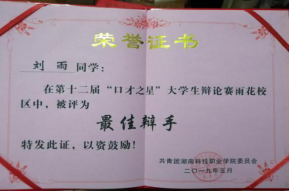 荣誉证书
刘雨同学：
在第十二届“口才之星”大学生辩论赛雨花校
区中，被评为
最佳辩手
特发此证，以资鼓励！
共青团湖南科技职业学院委员会
二〇一九年五月